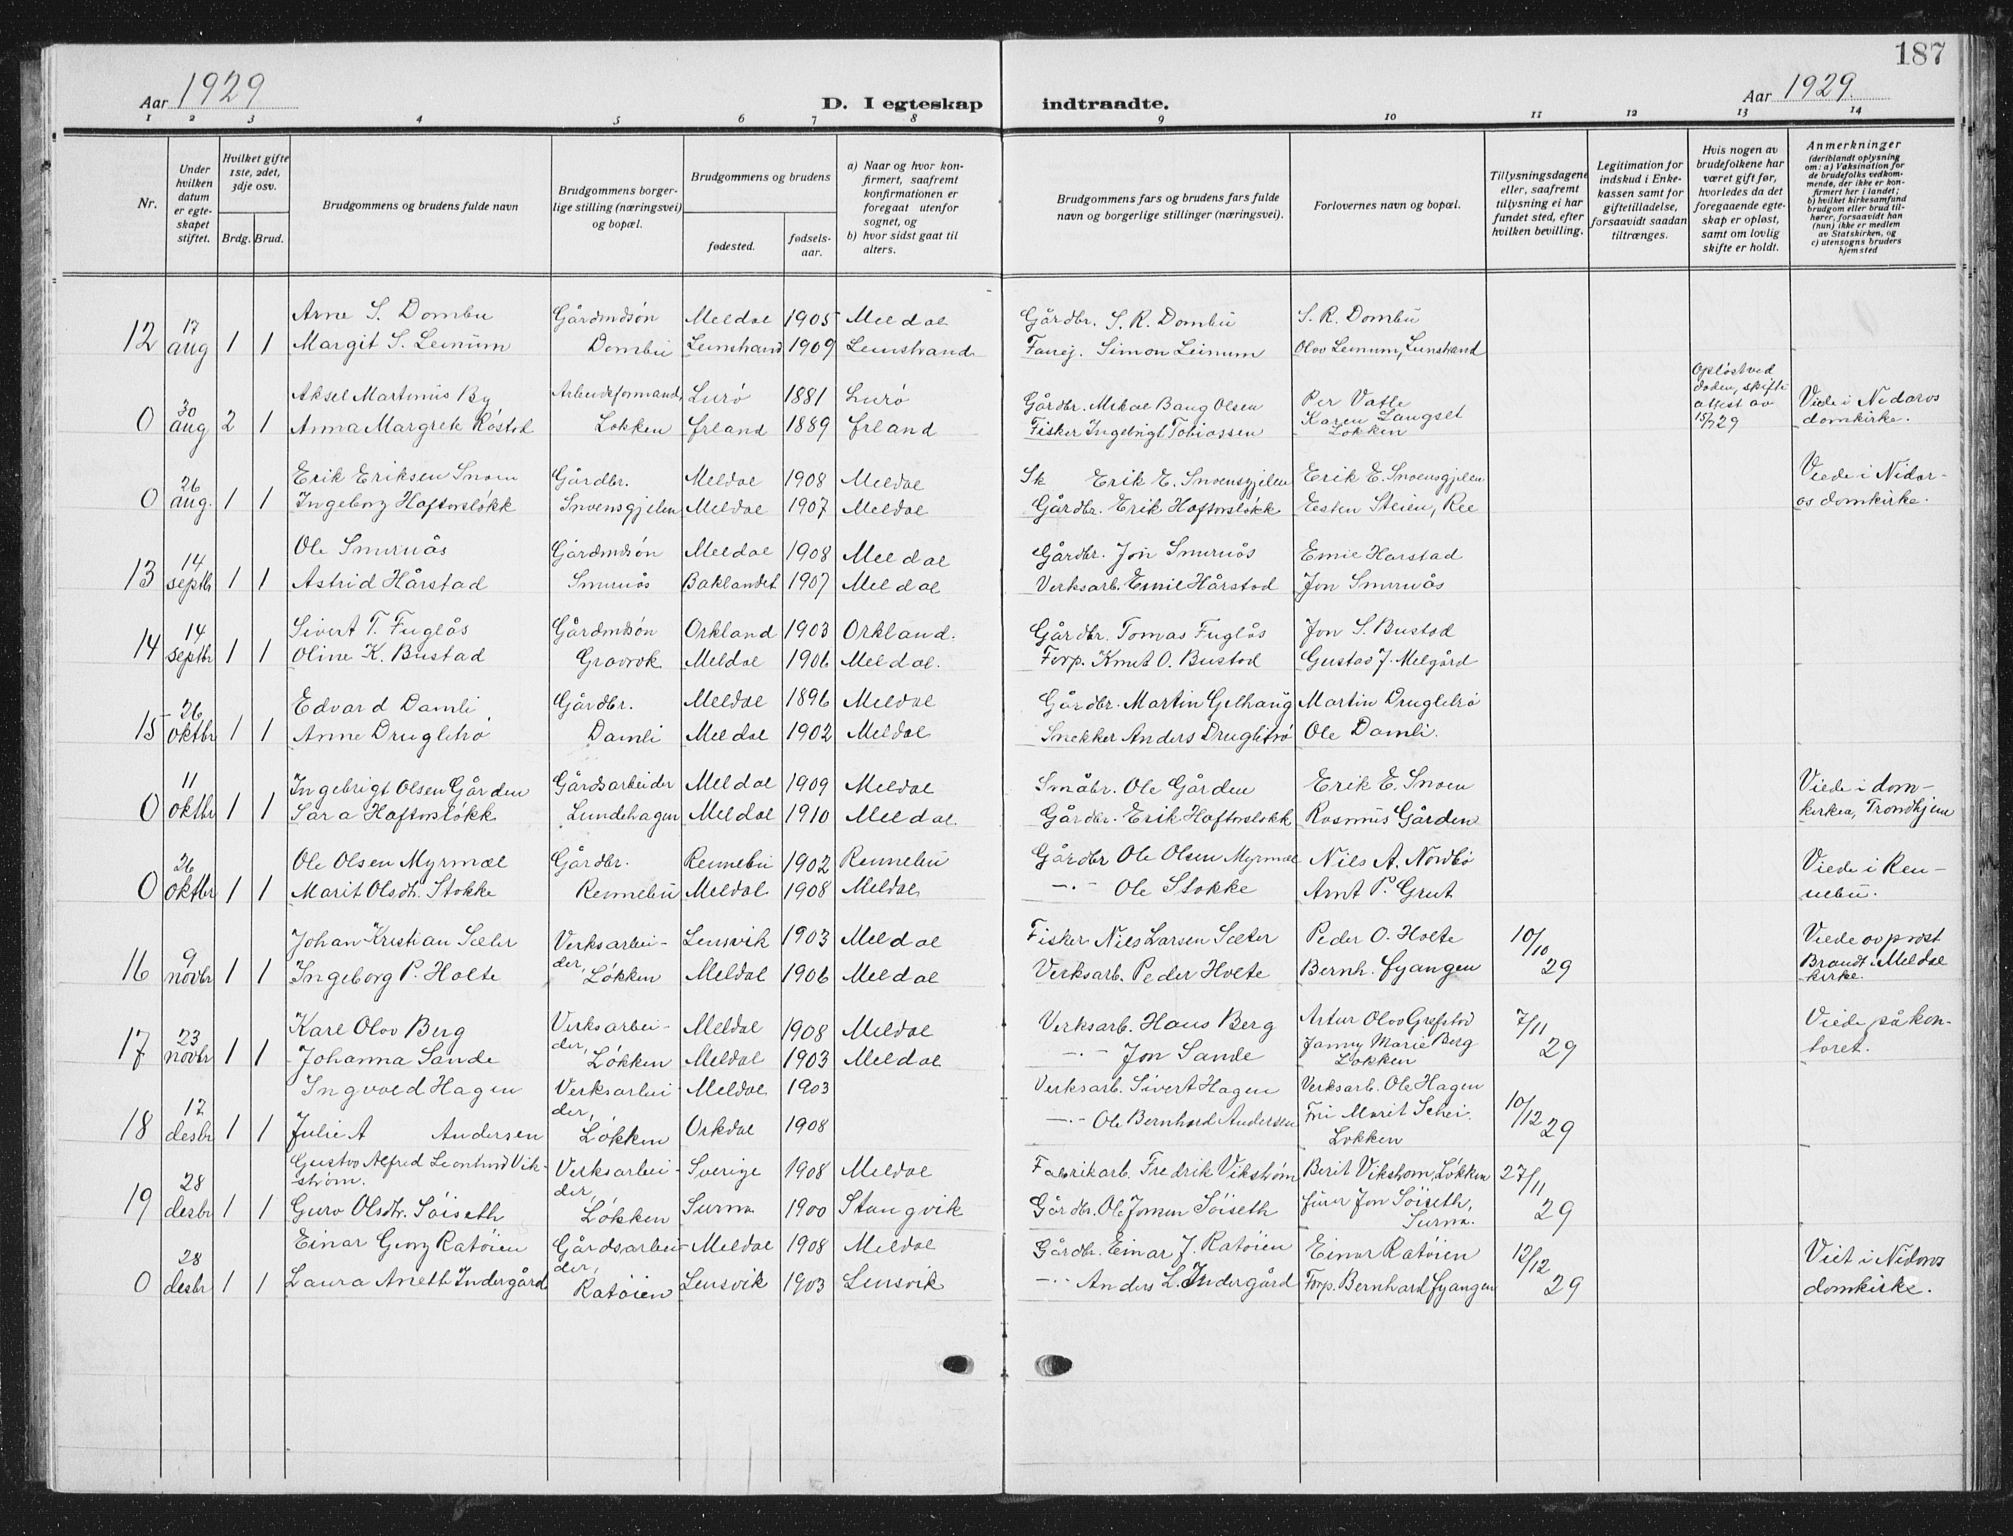 187
Aar 1929
D. I egteskap indtraadte.
Aar 1929.
1 2 3 4 5 6 7 8 9 10 11 12 13 14
Nr.
Under hvilken datum er egteskapet stiftet.
Hvilket gifte 1ste, 2det, 3dje osv.
Brdg. Brud.
Brudgommens og brudens fulde navn
Brudgommens borgerlige stilling (næringsvei) og bopæl.
Brudgommens og brudens
fødested.
fødselsaar.
a) Naar og hvor konfirmert, saafremt konfirmationen er foregaat utenfor sognet, og
b) hvor sidst gaat til alters.
Brudgommens fars og brudens fars fulde navn og borgerlige stillinger (næringsvei).
Forlovernes navn og bopæl.
Tillysningsdagene eller, saafremt tillysning ei har fundet sted, efter hvilken bevilling.
Legitimation for indskud i Enkekassen samt for giftetilladelse, forsaavidt saadan tiltrænges.
Hvis nogen av brudefolkene har været gift før, hvorledes da det foregaaende egteskap er opløst, samt om lovlig skifte er holdt.
Anmerkninger (deriblandt oplysning om: a) Vaksination for de brudefolks vedkommende, der ikke er konfirmert her i landet; b) hvilket kirkesamfund brudgom eller brud tilhører, forsaavidt han (hun) ikke er medlem av Statskirken, og c) utensogns bruders hjemsted
17 Arne S. Dombu Gårdmdsøn Meldal 1905 Meldal Gårdbr. S. R. Dombu S. R. Dombu
12 aug 1 1 Margit S. Leinum Dombu Leinstrand 1909 Leinstrand Simon Leinum Olov Leinum, Leinstrand
30 Aksel Martinius By Arbeidsformand, Lurø 1881 Lurø Gårdbr. Mikal Bang Olsen Per Vatle Opløst ved døden, skifteattest av 15/7 29 Viede i Nidaros
0 aug 2 1 Anna Margrete Røstok Løkken Ørland 1889 Ørland Fisker Ingebrigt Tobiassen Karen Langset Løkken domkirke.
26 Erik Eriksen Snoen Gårdbr. Meldal 1908 Meldal Sk Erik E. Snoensgjelen Erik E. Snoensgjelen Viede i Nidar-
0 aug. 1 1 Ingeborg Haftorsløkk Snoensgjelen Meldal 1907 Meldal Gårdbr. Erik Haftorsløkk Esten Steien, Ree os domkirke.
14 Ole Smernås Gårdmdsøn Meldal 1908 Meldal Gårdbr. Jon Smernås Emil Harstad
13 septbr 1 1 Astrid Hårstad Smernås Baklandet 1907 Meldal Verksarb. Emil Hårstad Jon Smernås
14 Sivert T. Fuglås Gårdmdsøn Orkland 1903 Orkland. Gårdbr. Tomas Fuglås Jon S. Bustad
14 septbr 1 1 Oline K. Bustad Gravrok Meldal 1906 Meldal. Forp. Knut O. Bustad Gustav J. Melgård
26 Edvard Damli Gårdbr. Meldal 1896 Meldal Gårdbr. Martin Gelhaug Martin Drugletrø
15 oktbr 1 1 Anne Drugletrø Damli Meldal 1902 Meldal Snekker Anders Drugletrø Ole Damli.
11 Ingebrigt Olsen Gården Gårdsarbeider Meldal 1909 Meldal Småbr. Ole Gården Erik E. Snoen Viede i dom-
0 oktbr 1 1 Sara Haftorsløkk Lundehagen Meldal 1910 Meldal. Gårdbr. Erik Haftorsløkk Rasmus Gården kirken, Trondhjem
26 Ole Olsen Myrmæl Gårdbr. Rennebu 1902 Rennebu Gårdbr Ole Olsen Myrmæl Nils A. Nordbø Viede i Ren-
0 oktbr 1 1 Marit Olsdtr. Stokke Rennebu Meldal 1908 Meldal -"- Ole Stokke Arnt P. Grut nebu.
9 Johan Kristian Sæter Verksarbei- Lensvik 1903 Meldal Fisker Nils Larsen Sæter Peder O. Holte 10/10 Viede av prost
16 novbr 1 1 Ingeborg P. Holte der, Løkken Meldal 1906 Meldal Verksarb. Peder Holte Bernh. Øyangen 29 Brandt i Meldal kirke.
23 Karl Olov Berg Verksarbei- Meldal 1908 Meldal Verksarb. Hans Berg Artur Olov Grefstad 7/11 Viede på kon-
17 novbr 1 1 Johanna Sande der, Løkken Meldal 1903 Meldal -"- Jon Sande Janny Marie Berg Løkken 29 toret.
17 Ingvald Hagen Verksarbei Meldal 1903 Verksarb. Sivert Hagen Verksarb. Ole Hagen 10/12
18 desbr 1 1 Julie A Andersen der, Løkken Orkdal 1908 -"- Ole Bernhard Andersen Frk Marit Schei. Løkken 29
28 Gustav Alfred Leonhard Vikstrøm. Verksarbei- Sverige 1908 Meldal Fabrikarb. Fredrik Vikstrøm Berit Vikstrøm, Løkken 27/11
19 desbr 1 1 Guro Olsdtr. Søiseth der, Løkken Surna 1900 Stangvik Gårdbr. Ole Jonsen Søiseth Jon Søiseth, Surna. 29
28 Einar Georg Ratøien Gårdsarbei- Meldal 1908 Meldal Gårdbr. Einar J. Ratøien Einar Ratøien 12/12 Viet i Nidaros
0 desbr 1 1 Laura Aneth Indergård der, Ratøien Lensvik 1903 Lensvik -"- Anders L. Indergård Forp. Bernhard Øyangen 29 domkirke.